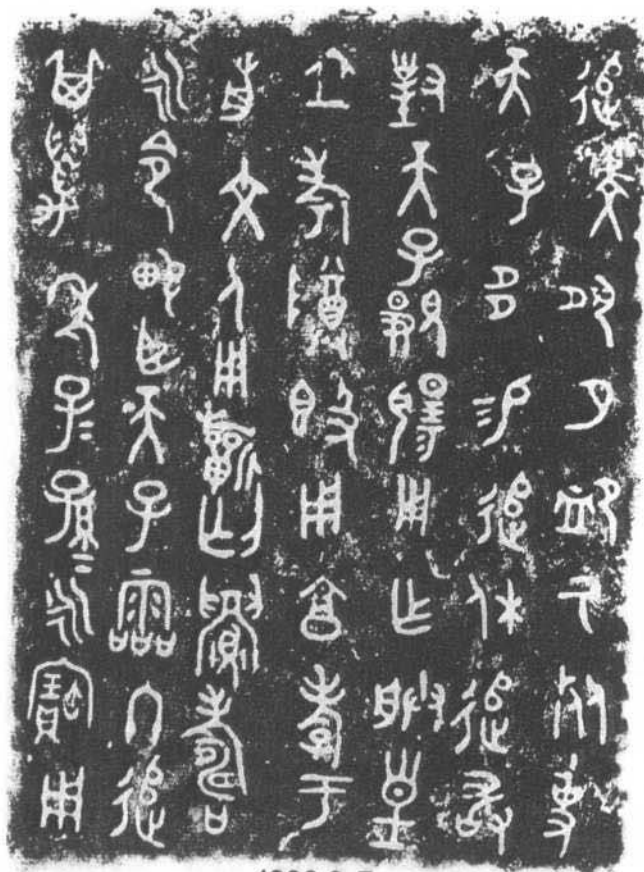 追虔夙夕卹氒死事
天子多易追休追敢
對天子顯揚用乍朕皇
且考尊簋用享孝于
前文人用祈匄眉壽
永令畯臣天子霝冬追
其萬年子=孫=永寶用